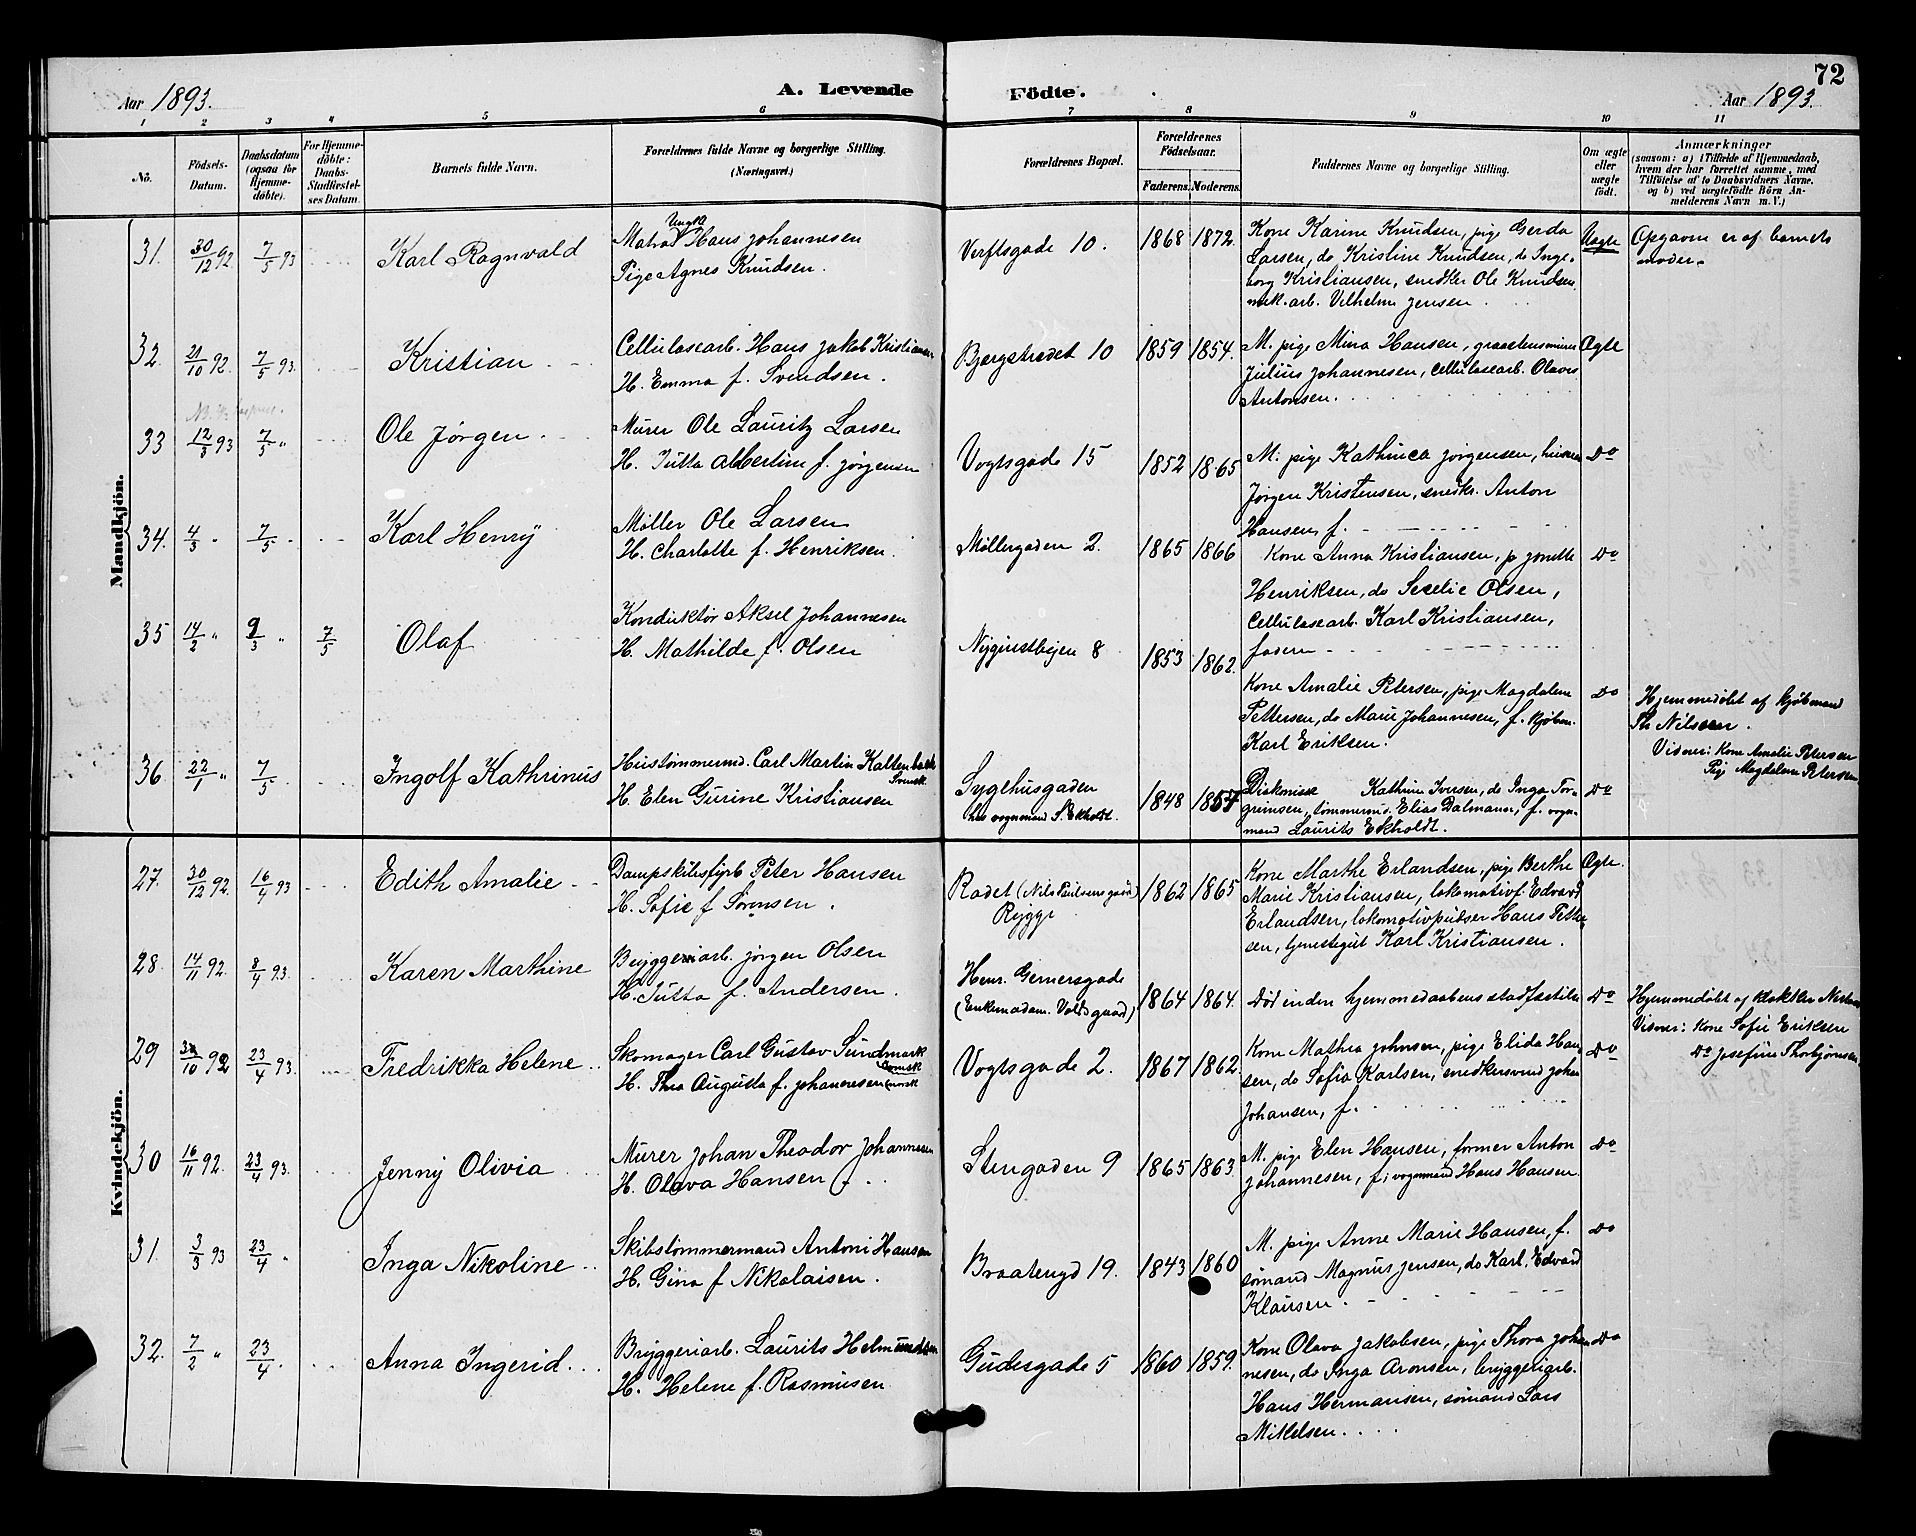 72
Aar 1893.
A. Levende
Födte.
Aar 1893.
1 2 3 4 5 6 7 8 9 10 11
No.
Födsels-
Datum.
Daabsdatum
(ogsaa for
Hjemme-
døbte).
For Hjemme-
døbte:
Daabs-
Stadfæstel-
ses Datum.
Barnets fulde Navn.
Forældrenes fulde Navne og borgerlige Stilling.
(Næringsvei.)
Forældrenes Bopæl.
Forældrenes
Födselsaar.
Faderens. Moderens.
Faddernes Navne og borgerlige Stilling.
Om ægte
eller
uægte
födt.
Anmærkninger
(saasom: a) i Tilfælde af Hjemmedaab,
hvem der har forrettet samme, med
Tilføielse af to Daabsvidners Navne,
og b) ved uægtefödte Börn An-
melderens Navn m. V.)
Mandkjön.
31. 30/12 92. 7/5 93 Karl Ragnvald
Ungk
Matros Hans Johannesen
Pige Agnes Knudsen.
Verftsgade 10. 1868 1872.
Kone Karine Knudsen, pige Gerda
Larsen, do Kristine Knudsen, do Inge-
borg Kristiansen, snedker Ole Knudsen,
mek. arb. Vilhelm Jensen
Uægte
Opgaven er af barnets
moder.
32. 21/10 92. 7/5 93. Kristian
Cellulosearb. Hans Jakob Kristiansen
H. Emma f. Svendsen.
Bjergstrædet 10 1859 1854.
M. pige Mina Hansen,
Julius Johannesen, cellulosearb. Olaves
Antonsen.
Ægte
33 12/3 93 7/5 " Ole Jørgen.
Murer Ole Lauritz Larsen
H. Jutta Albertine f. Jørgensen
Vogtsgade 15 1852 1865
M. pige Kathinca Jørgensen,
Jørgen Kristensen, snedkr. Anton
Hansen, f.
Do
34. 4/3 " 7/5 " Karl Henry
Møller Ole Larsen
H. Charlotte f. Henriksen.
Møllergaden 2. 1865 1866
Kone Anna Kristiansen, p Jonette
Henriksen, do Secelie Olsen,
Cellulosearb. Karl Kristiansen,
faderen
Do
35 14/2 " 9/3 " 7/5 Olaf
Konduktør Aksel Johannesen
H. Mathilde f. Olsen
8 1853 1862.
Kone Amalie Petersen, pige Magdalene
Pettersen, do Marie Johannesen, f. kjøbm.
Karl Eriksen.
Do
Hjemmedøbt af kjøbmand
Th Nilssen.
Visner: Kone Amalie Petersen
Pige Magdalene Petersen
36. 22/1 " 7/5 Ingolf Kathrinus
Hustømmermd. Carl Martin Kaltenback
Svensk
H. Elen Gurine Kristiansen
Sygehusgaden
hos vognmand S. Ekholdt. 1848 1857
Diakonisse Kathrine Iversen, do Inga Tor-
grimsen, tømmermd. Elias Dalmann, f. vogn-
mand Laurits Ekholdt.
Do
Kvindekjön.
27. 30/12 92. 16/4 93 Edith Amalie
Dampskibsfyrb Peter Hansen
H. Sofie f Sørensen.
Radet (Nils Paulsens gaard)
Rygge 1862 1865
Kone Marthe Erlandsen, pige Berthe
Marie Kristiansen, lokomotivf. Edvard
Erlandsen, lokomotivpudser Hans Petter-
sen, tjenestegut Karl Kristiansen.
Ægte.
28. 14/11 92. 8/4 93. Karen Marthine
Bryggeriarb. Jørgen Olsen
H. Jutta f. Andersen.
Henr. Gerners gade
(Enkemadam. Volds gaard) 1864 1864.
Død inden hjemmedaabens stadfæstelse
Do
Hjemmedøbt af
Visner: Kone Sofie Eriksen
Do Josefine Thorbjørnsen
29 30/10 92 23/4 93. Fredrikka Helene
Skomager Carl Gustav Sundmark
(svensk
H. Thea Augusta f. Johannesen (norsk
Vogtsgade 2. 1867 1862.
Kone Mathea Johnsen, pige Elida Han-
sen, do Sofia Karlsen, snedkersvend Johan
Johansen, f.
Do
30 16/11 92. 23/4 93. Jenny Olivia
Murer Johan Theodor Johannesen
H. Olava Hansen
Stengaden 9 1865 1863.
M. pige Elen Hansen, former Anton
Johannesen, f, vognmand Hans Hansen
Do
31. 3/3 93 23/4 " Inga Nikoline
Skibstømmermand Antoni Hansen
H. Gina f Nikolaisen.
Braatengd 19. 1843 1860
M. pige Anne Marie Hansen, f.
sømand Magnus Jensen, do Karl Edvard
Klausen.
Do
32. 7/2 " 23/4. Anna Ingerid
Bryggeriarb. Laurits Helmundsen
H. Helene f. Rasmusen
Gudesgade 5 1860 1859.
Kone Olava Jakobsen, pige Thora Johan-
nesen, do Inga Aronsen, bryggeriarb.
Hans Hermansen, sømand Lars
Mikelsen.
Do